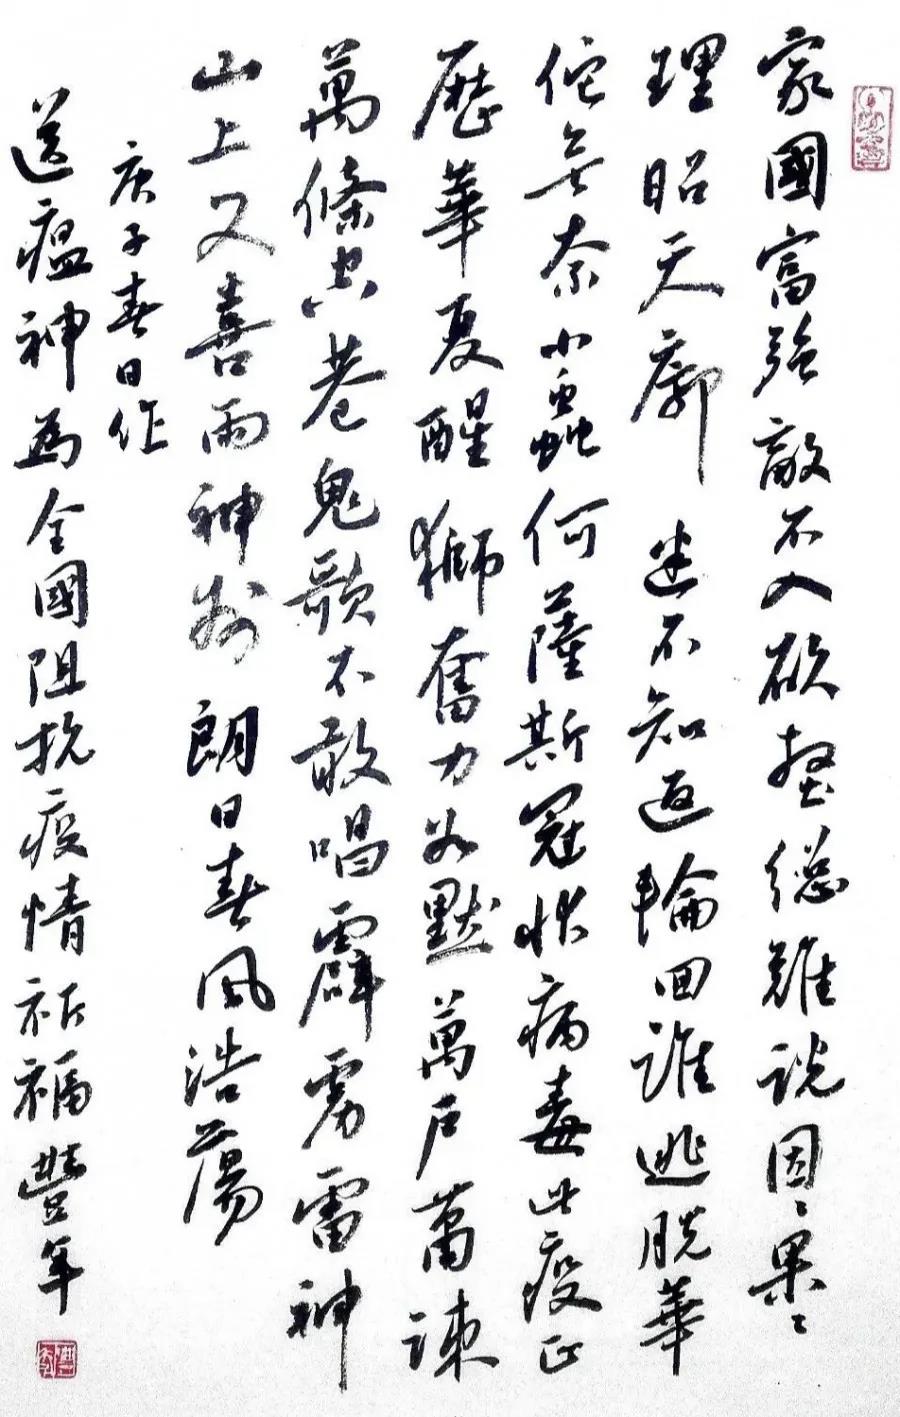 家國富強敵不入欲壑總難說因〻果〻
理昭天廓迷不知返輪回誰逃脫華
佗無奈小蟲何薩斯冠狀病毒此疫正
歷華夏醒獅奮力默萬戶蕭疎
萬條空巷鬼歌不敢唱霹靂雷神
山上又喜雨神州朗日春風浩蕩
庚子春日作
送瘟神為全國阻抗疫情祈福豐年